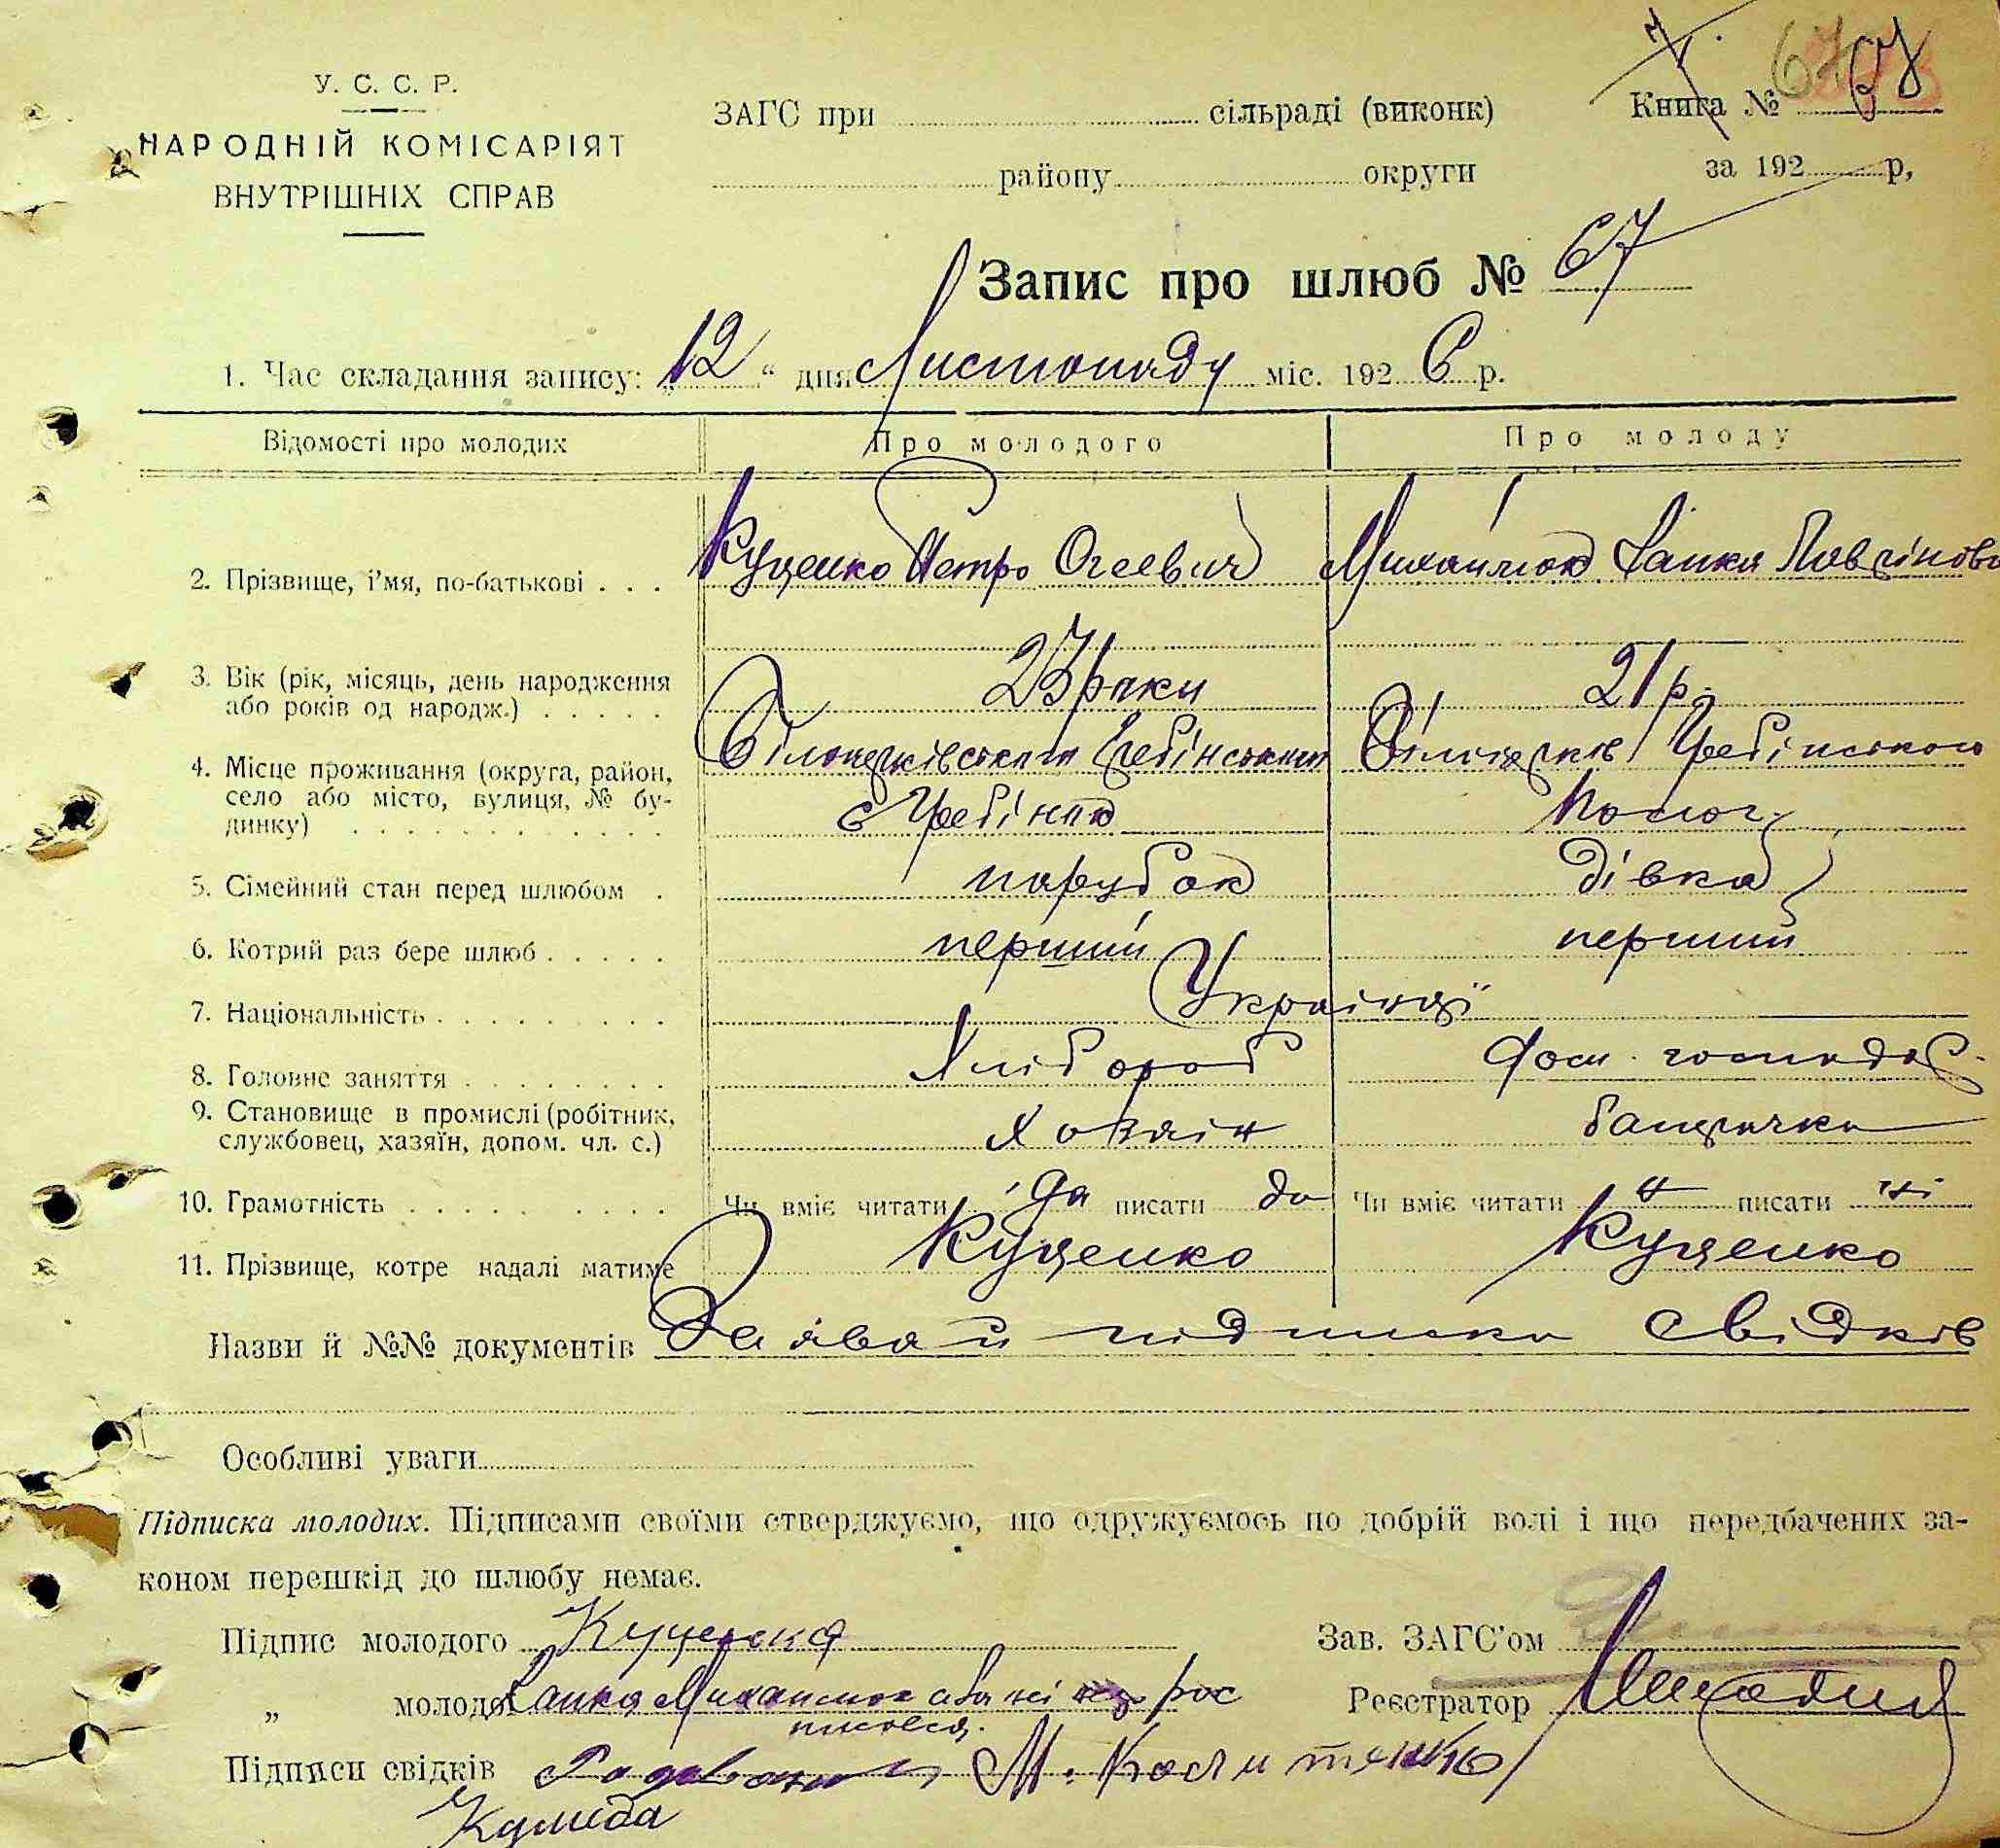 У. С. С. Р.
НАРОДНІЙ КОМІСАРІЯТ
ВНУТРІШНІХ СПРАВ
ЗАГС при сільраді (виконк)
району округи
Книга №
за 192 р,
Запис про шлюб № 67
1. Час складання запису: „12“ дня Листопаду міс. 1926 р.
Відомості про молодих Про молодого Про молоду
2. Прізвище, і'мя, по-батькові . . . Куценко Петро Михайлюк Ганка
3. Вік (рік, місяць, день народження
або років од народж.) . . . . . 23 роки 21 р.
4. Місце проживання (округа, район,
село або місто, вулиця, № бу-
динку) . . . . . . . . . . .
Білоцерківського Гребінського Гребінського
с Гребінка
5. Сімейний стан перед шлюбом . парубок дівка
6. Котрий раз бере шлюб . . . . . перший перший
7. Національність . . . . . . . . . Українці
8. Головне заняття . . . . . . . . Хлібороб дом. господар.
9. Становище в промислі (робітник,
службовец, хазяїн, допом. чл. с.) Хозяін
10. Грамотність . . . . . . . . . Чи вміє читати да писати да Чи вміє читати писати ні
11. Прізвище, котре надалі матиме Куценко Куценко
Назви й №№ документів Заява й підписка свідків
Особливі уваги
Підписка молодих. Підписами своїми стверджуємо, що одружуємось по добрій волі і що передбачених за-
коном перешкід до шлюбу немає.
Підпис молодого Куценко
„ молодої Ганка Михайлюк
Зав. ЗАГС'ом
Реєстратор
Підписи свідків М.